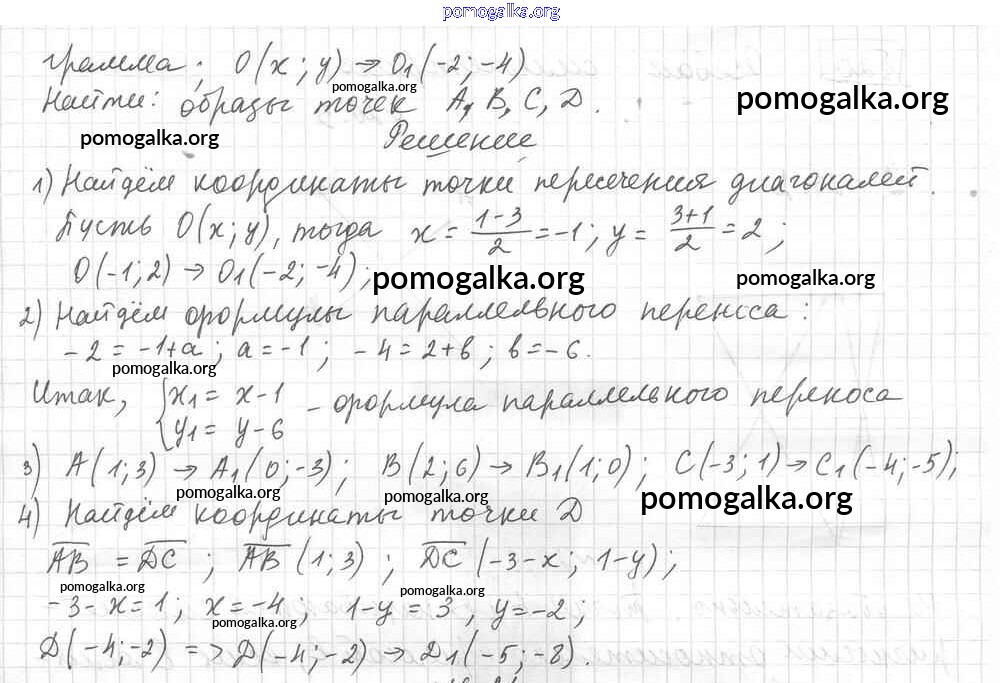 pomogalka.org
грамма; O(x; y) → O₁(-2; -4)
pomogalka.org
Найти: образы точек A, B, C, D.
pomogalka.org
pomogalka.org
Решение
1) Найдём координаты точки пересечения диагоналей.
Пусть O(x; y), тогда x = (1-3)/2 = -1; y = (3+1)/2 = 2;
O(-1; 2) → O₁(-2; -4);
pomogalka.org
pomogalka.org
2) Найдём формулы параллельного переноса:
-2 = -1+a; a = -1; -4 = 2+b; b = -6.
pomogalka.org
Итак, {x₁ = x-1
{y₁ = y-6 – формула параллельного переноса
3) A(1; 3) → A₁(0; -3); B(2; 6) → B₁(1; 0); C(-3; 1) → C₁(-4; -5);
pomogalka.org
pomogalka.org
pomogalka.org
4) Найдём координаты точки D
AB = DC; AB(1; 3); DC(-3-x; 1-y);
pomogalka.org
pomogalka.org
-3-x = 1; x = -4; 1-y = 3, y = -2;
pomogalka.org
D(-4; -2) => D(-4; -2) → D₁(-5; -8).